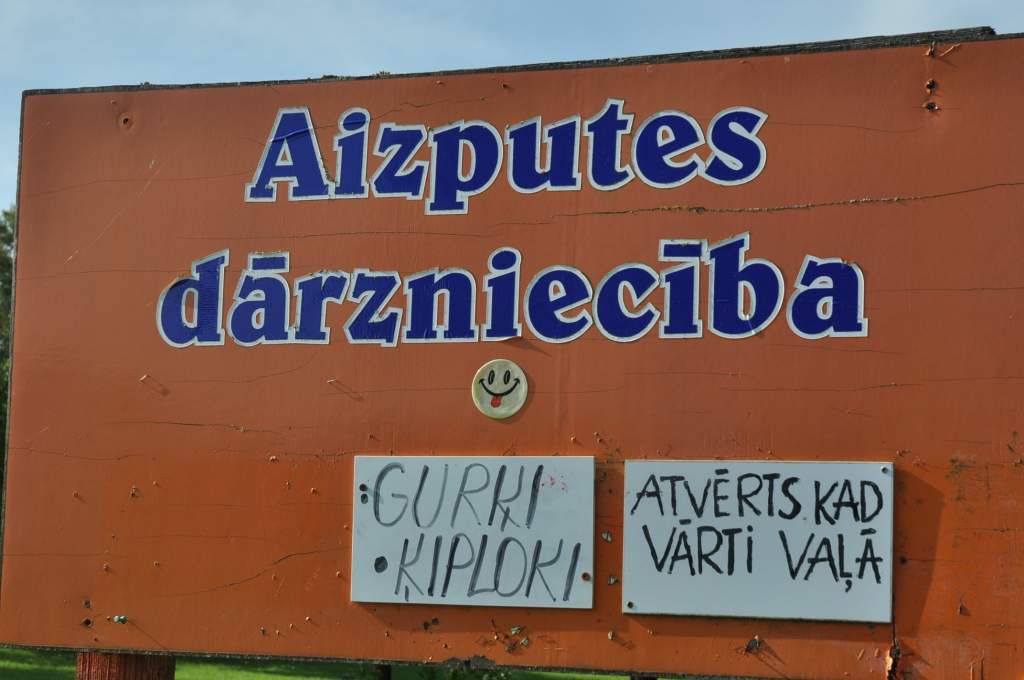 Aizputes
dārzniecība
GURĶI
ĶIPLOKI
ATVĒRTS KAD
VĀRTi VAĻĀ